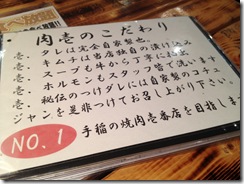 肉壱のこだわり
壱．タレは完全自家製を
壱．キムチは当店独自の漬け込み
壱．スープも牛から丁寧に
壱．ホルモンもスタッフ皆で洗います
壱．秘伝のつけダレには自家製のコチュ
ジャンを是非つけてお召し上がり下さい。
NO.1
手稲の焼肉壱番店を目指します